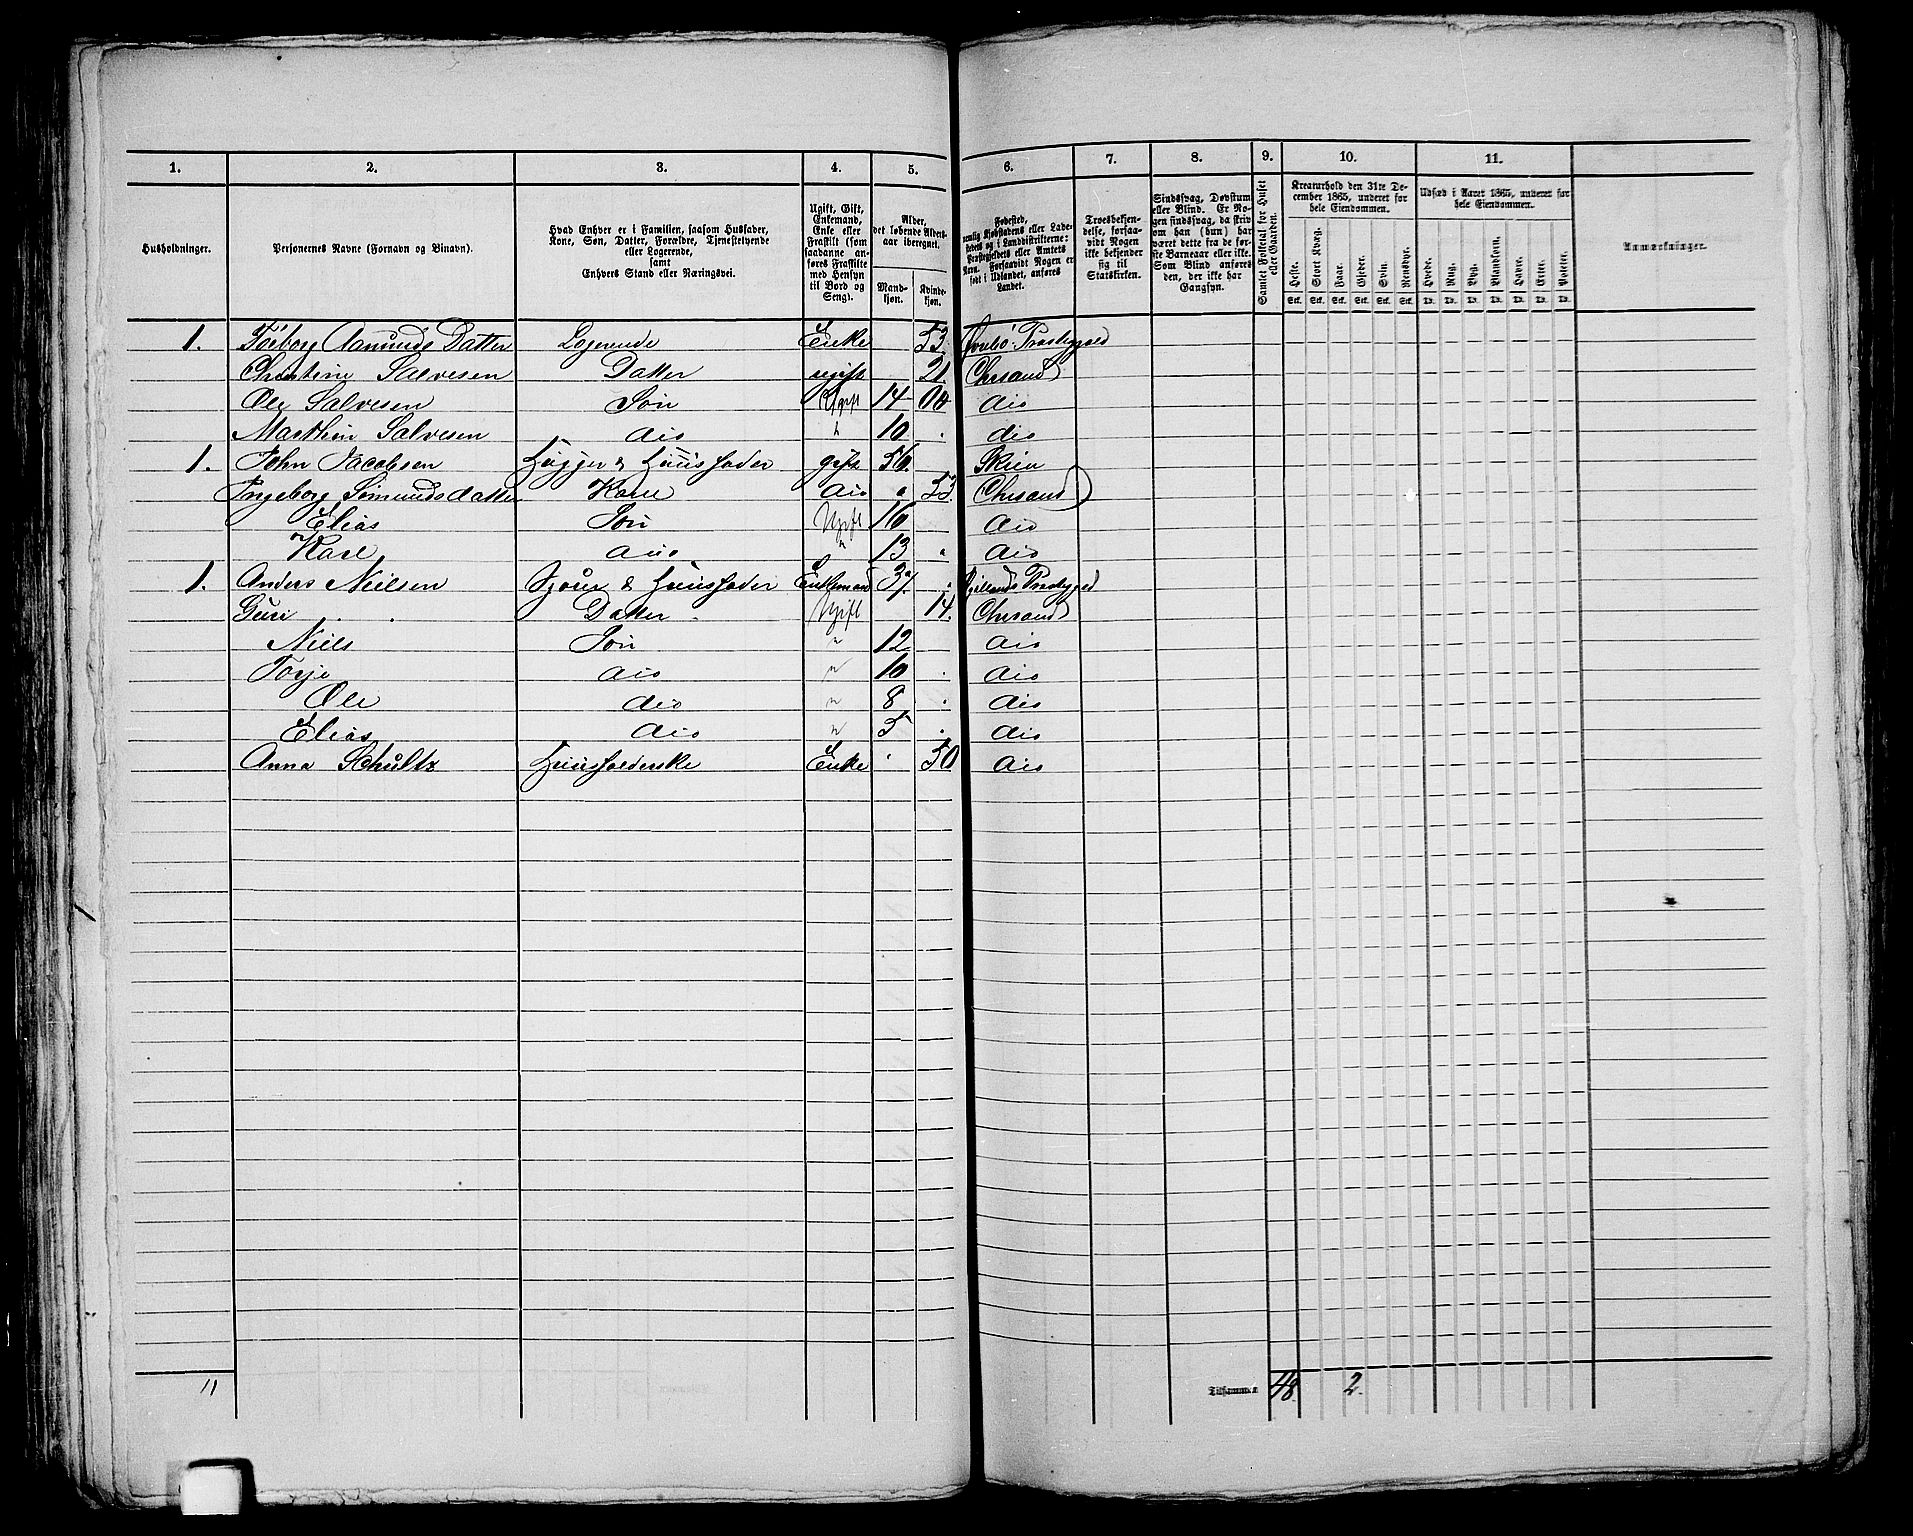 1. 2. 3. 4. 5. 6. 7. 8. 9. 10. 11.
Husholdninger.
Personernes Navne (Fornavn og Binavn).
Hvad Enhver er i Familien, saasom Husfader,
Kone, Søn, Datter, Forældre, Tjenestetyende
eller Logerende,
samt
Enhvers Stand eller Næringsvei.
Ugift, Gift,
Enkemand,
Enke eller
Fraskilt (som
saadanne an-
føres Fraskilte
med Hensyn
til Bord og
Seng).
Alder,
det løbende Alders-
aar iberegnet.
Mand-
kjøn.
Kvinde-
kjøn.
Fødested,
Kjøbstadens eller Lade-
stedets og i Landdistrikterne:
Præstegjeldets eller Amtets
Navn. Forsaavidt Nogen er
født i Udlandet, anføres
Landet.
Troesbekjen-
delse, forsaa-
vidt Nogen
ikke bekjender
sig til
Statskirken.
Sindssvag, Døvstum
eller Blind. Er No-
gen sindssvag, da skriv
om han (hun) har
været dette fra de før-
ste Barneaar eller ikke.
Som Blind anføres
den, der ikke har
Gangsyn.
Samlet Folketal for Huset
eller Gaarden.
Kreaturhold den 31te De-
cember 1865, underet for
hele Eiendommen.
Heste. Stort Kvæg. Faar. Gjeder. Svin. Rensdyr.
Stk. Stk. Stk. Stk. Stk. Stk.
Udsæd i Aaret 1865, underet for
hele Eiendommen.
Hvede. Rug. Byg. Blandkorn. Havre. Erter. Poteter.
Anmærkninger.
1. Aamunds Datter Logerende Enke 53.
Christine Salvesen Datter ugift 21. Chrsand
Ole Salvesen Søn Ugift 14 dio
Marthin Salvesen dio 10 . dio
1. John Jacobsen & Huusfader gift 56. Skien
Ingeborg Sømundsdatter Kone dio " 53. Chrsand
Elias Søn Ugift 16 dio
Karl dio " 13 " dio
1. Anders Nielsen & Huusfader Enkemand .
Guri Datter Ugift 14. Chrsand
Niels Søn " 12 dio
Torje dio " 10 . dio
Ole dio " 8 . dio
Elias dio " 5 . dio
Anna Schultz Enke . 50 dio
11 Tilsammen 48 2.